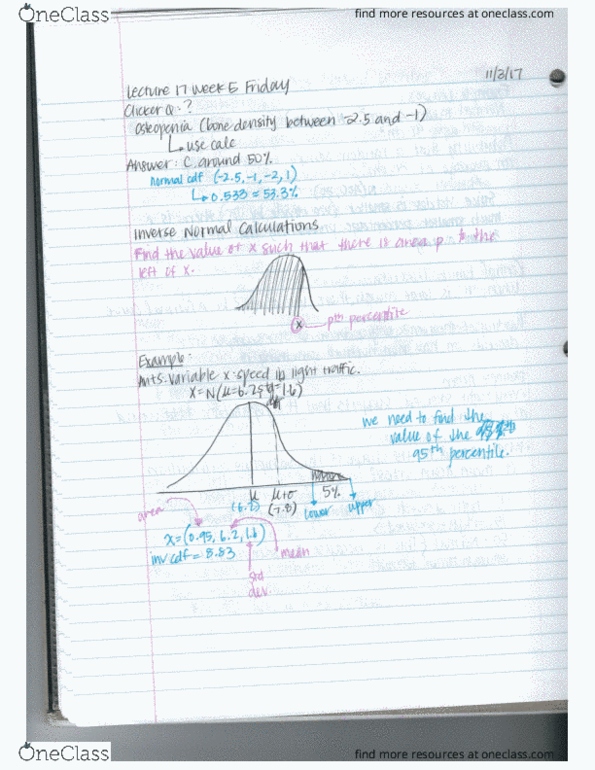 OneClass
find more resources at oneclass.com
11/3/17
Lecture 17 Week 5 Friday
Clicker Q: ?
Osteopenia (bone density between -2.5 and -1)
use calc
Answer: C. around 50%
normal cdf (-2.5, -1, -2, 1)
0.533 = 53.3%
Inverse Normal Calculations
Find the value of x such that there is area p to the
left of x.
x
pth percentile
Example:
Ants: variable x = speed in light traffic.
X = N(μ=6.2, σ=1.6)
we need to find the
value of the
95th percentile.
μ
μ+σ
5%
(6.2)
(7.8)
lower
upper
area
x = (0.95, 6.2, 1.6)
inv cdf = 8.83
mean
std
dev.
OneClass
find more resources at oneclass.com